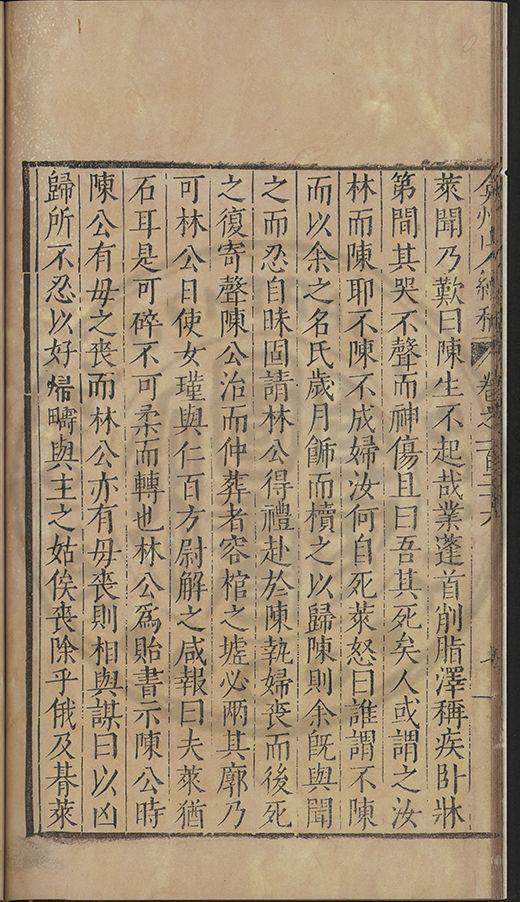 弇州山人續稿 卷之一百二十六
萊聞乃歎曰陳生不起哉業蓬首削脂澤稱疾卧牀
第間其哭不聲而神傷且曰吾其死矣人或謂之汝
林而陳耶不陳不成婦汝何自死萊怒曰誰謂不陳
而以余之名氏歲月飾而櫝之以歸陳則余旣與聞
之而忍自昧固請林公得禮赴於陳執婦喪而後死
之復寄聲陳公治而仲葬者容棺之墟必兩其廓乃
可林公日使女瑾與仁百方尉解之咸報曰夫萊猶
石耳是可碎不可柔而轉也林公爲貽書示陳公時
陳公有母之喪而林公亦有母喪則相與謀曰以凶
歸所不忍以好歸疇與主之姑俟喪除乎俄及朞萊